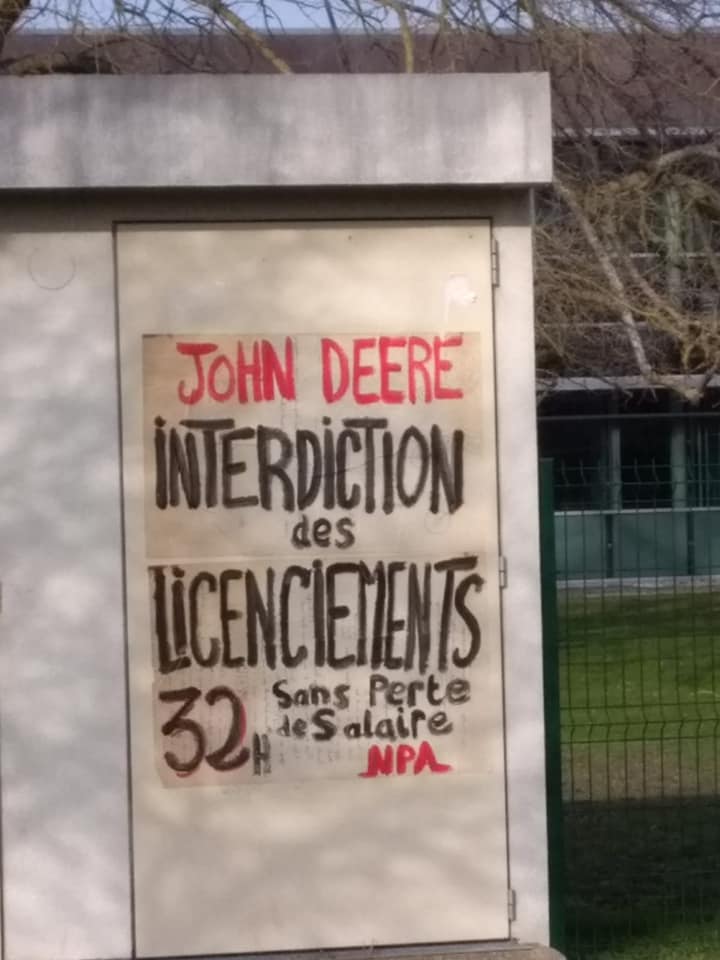 JOHN DEERE
iNTERDiCTiON
des
LiCENCiEMENTS
32H Sans Perte
de Salaire
NPA